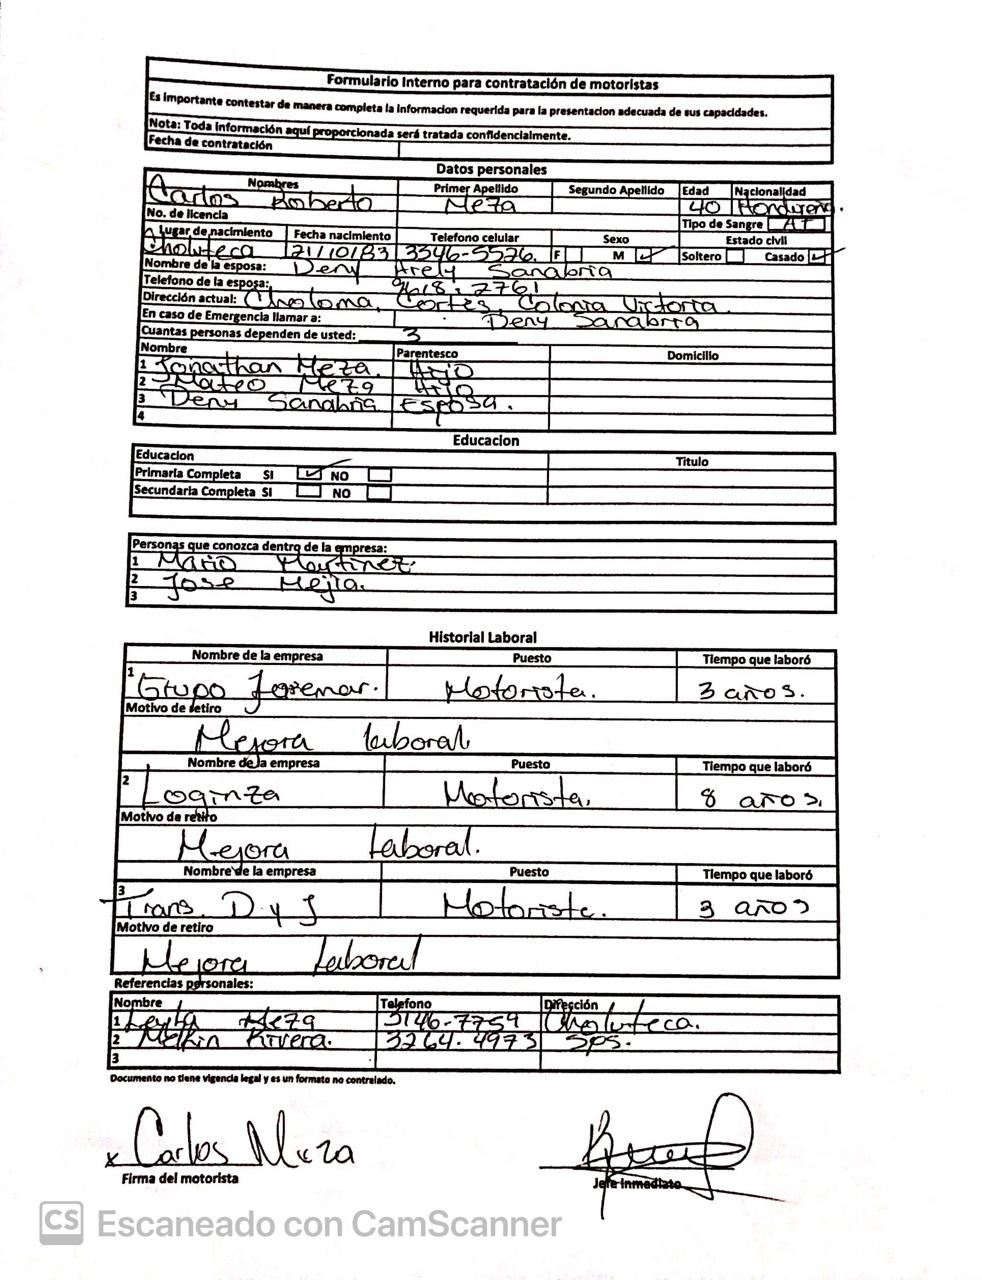 Formulario Interno para contratación de motoristas
Es importante contestar de manera completa la informacion requerida para la presentacion adecuada de sus capacidades.
Nota: Toda información aquí proporcionada será tratada confidencialmente.
Fecha de contratación
Datos personales
Nombres Primer Apellido Segundo Apellido Edad Nacionalidad
Carlos Roberto Meza 40 Hondureño.
No. de licencia Tipo de Sangre
Lugar de nacimiento Fecha nacimiento Telefono celular Sexo Estado civil
Choluteca 21/10/83 3346-5526. F M Soltero Casado
Nombre de la esposa: Deny Arely Sanabria
Telefono de la esposa: 9618-2761
Dirección actual: Choloma, Cortés, Colonia Victoria.
En caso de Emergencia llamar a: Deny Sanabria
Cuantas personas dependen de usted: 3
Nombre Parentesco Domicilio
1 Jonathan Meza. Hijo
2 Mateo Meza Hijo
3 Deny Sanabria Esposa.
4
Educacion
Educacion Titulo
Primaria Completa SI NO
Secundaria Completa SI NO
Personas que conozca dentro de la empresa:
1 Mario Martinez.
2 Jose Mejia.
3
Historial Laboral
Nombre de la empresa Puesto Tiempo que laboró
1 Grupo Joremar. Motorista. 3 años.
Motivo de retiro
Mejora laboral
Nombre de la empresa Puesto Tiempo que laboró
2 Loginza Motorista. 8 años.
Motivo de retiro
Mejora laboral.
Nombre de la empresa Puesto Tiempo que laboró
3 Trans. D y J Motorista. 3 años
Motivo de retiro
Mejora laboral
Referencias personales:
Nombre Telefono Dirección
1 Meza 3146-7759 Choluteca.
2 Melkin Rivera. 3264-4973 Sps.
3
Documento no tiene vigencia legal y es un formato no controlado.
x Carlos Meza
Firma del motorista Jefe inmediato
CS Escaneado con CamScanner